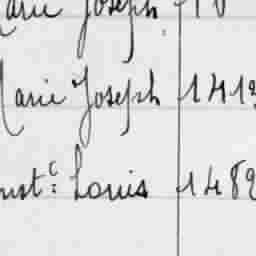 Marie Joseph
Marie Joseph 141
Const.e Louis 148